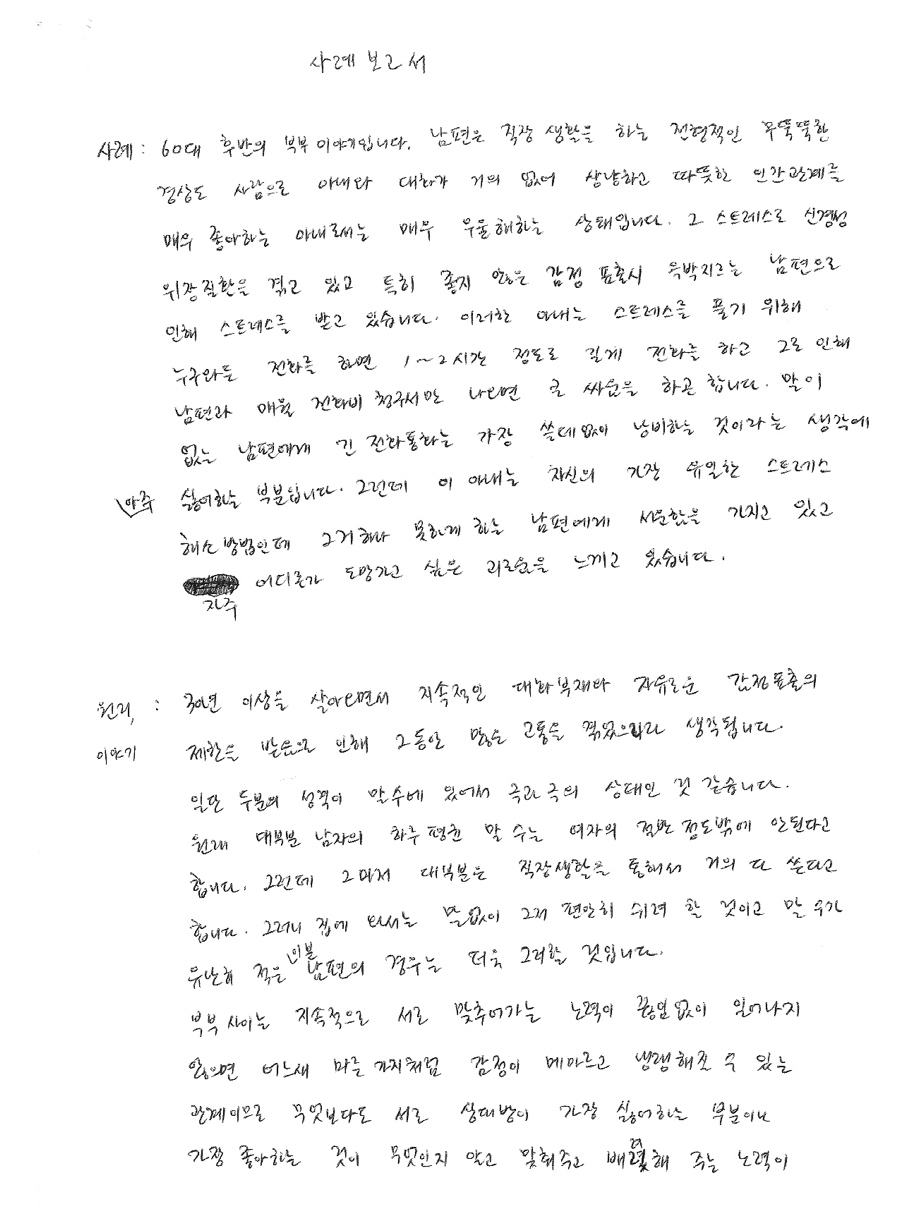 사례 보고서
사례 : 60대 후반의 부부 이야기입니다. 남편은 직장 생활을 하는 전형적인 무뚝뚝한
경상도 사람으로 아내와 대화가 거의 없어 상냥하고 따뜻한 인간관계를
매우 좋아하는 아내로서는 매우 우울해하는 상태입니다. 그 스트레스로 신경성
위장질환을 겪고 있고 특히 좋지 않은 감정 표출시 윽박지르는 남편으로
인해 스트레스를 받고 있습니다. 이러한 아내는 스트레스를 풀기 위해
누구와든 전화를 하면 1~2시간 정도로 길게 전화를 하고 그로 인해
남편과 매월 전화비 청구서만 나오면 큰 싸움을 하곤 합니다. 말이
없는 남편에게 긴 전화통화는 가장 쓸데없이 낭비하는 것이라는 생각에
아주 싫어하는 부분입니다. 그런데 이 아내는 자신의 가장 유일한 스트레스
해소 방법인데 그거 하나 못하게 하는 남편에게 서운함을 가지고 있고
자주 어디론가 도망가고 싶은 괴로움을 느끼고 있습니다.
원리, : 30년 이상을 살아오면서 지속적인 대화부재와 자유로운 감정표출의
이야기 제한을 받음으로 인해 그동안 많은 고통을 겪었으리라 생각됩니다.
일단 두분의 성격이 말수에 있어서 극과 극의 상태인 것 같습니다.
원래 대부분 남자의 하루 평균 말 수는 여자의 절반 정도밖에 안된다고
합니다. 그런데 그마저 대부분은 직장생활을 통해서 거의 다 쓴다고
합니다. 그러니 집에 와서는 말없이 그저 편안히 쉬려 할 것이고 말 수가
유난히 적은 이분 남편의 경우는 더욱 그러할 것입니다.
부부 사이는 지속적으로 서로 맞추어가는 노력이 끊임없이 일어나지
않으면 어느새 마른 가지처럼 감정이 메마르고 냉랭해질 수 있는
관계이므로 무엇보다도 서로 상대방이 가장 싫어하는 부분이나
가장 좋아하는 것이 무엇인지 알고 맞춰주고 배려해 주는 노력이